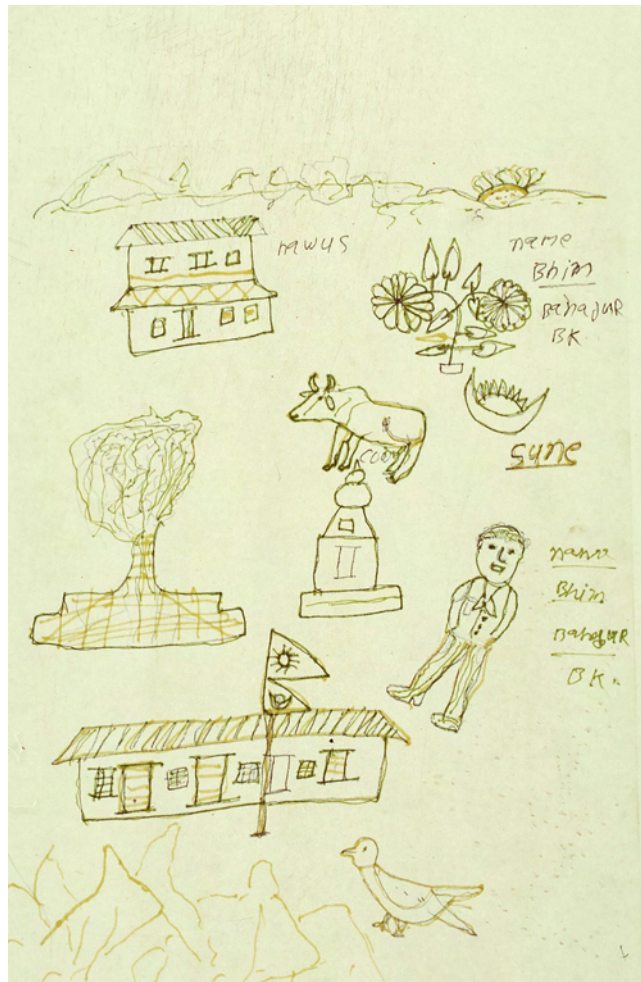 nawus
name
Bhim
Bahadur
BK.
cow
sune
name
Bhim
Bahadur
BK.